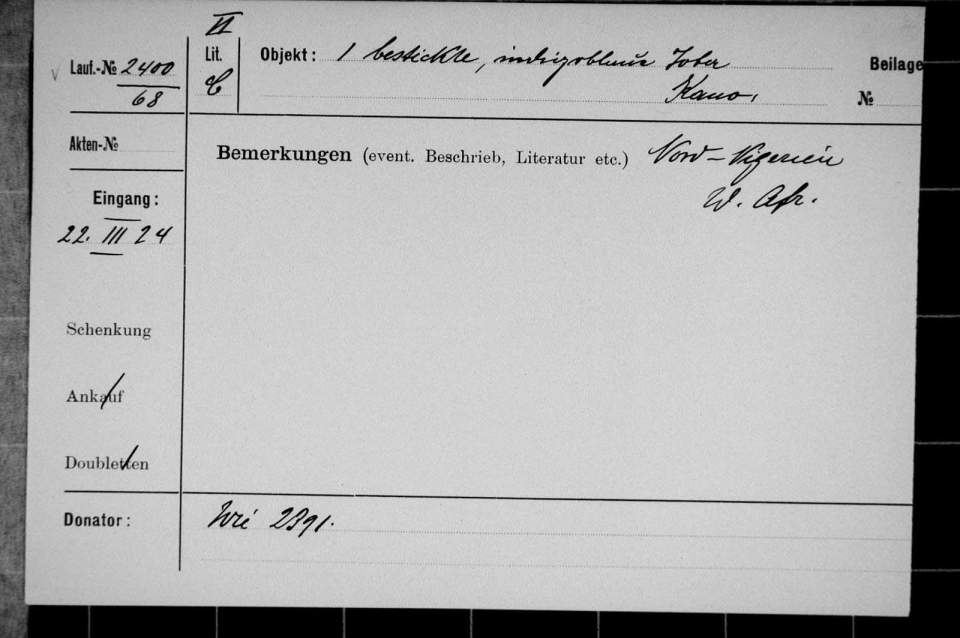 VI
Lauf.-№ 2400
68
Lit.
C
Objekt: 1 bestickte, indigoblaue Tobe
Kano,
Beilage
№
Akten-№
Bemerkungen (event. Beschrieb, Literatur etc.) Nord-Nigerien
W. Afr.
Eingang:
22. III 24
Schenkung
Ankauf
Doubletten
Donator: Wie 2391.